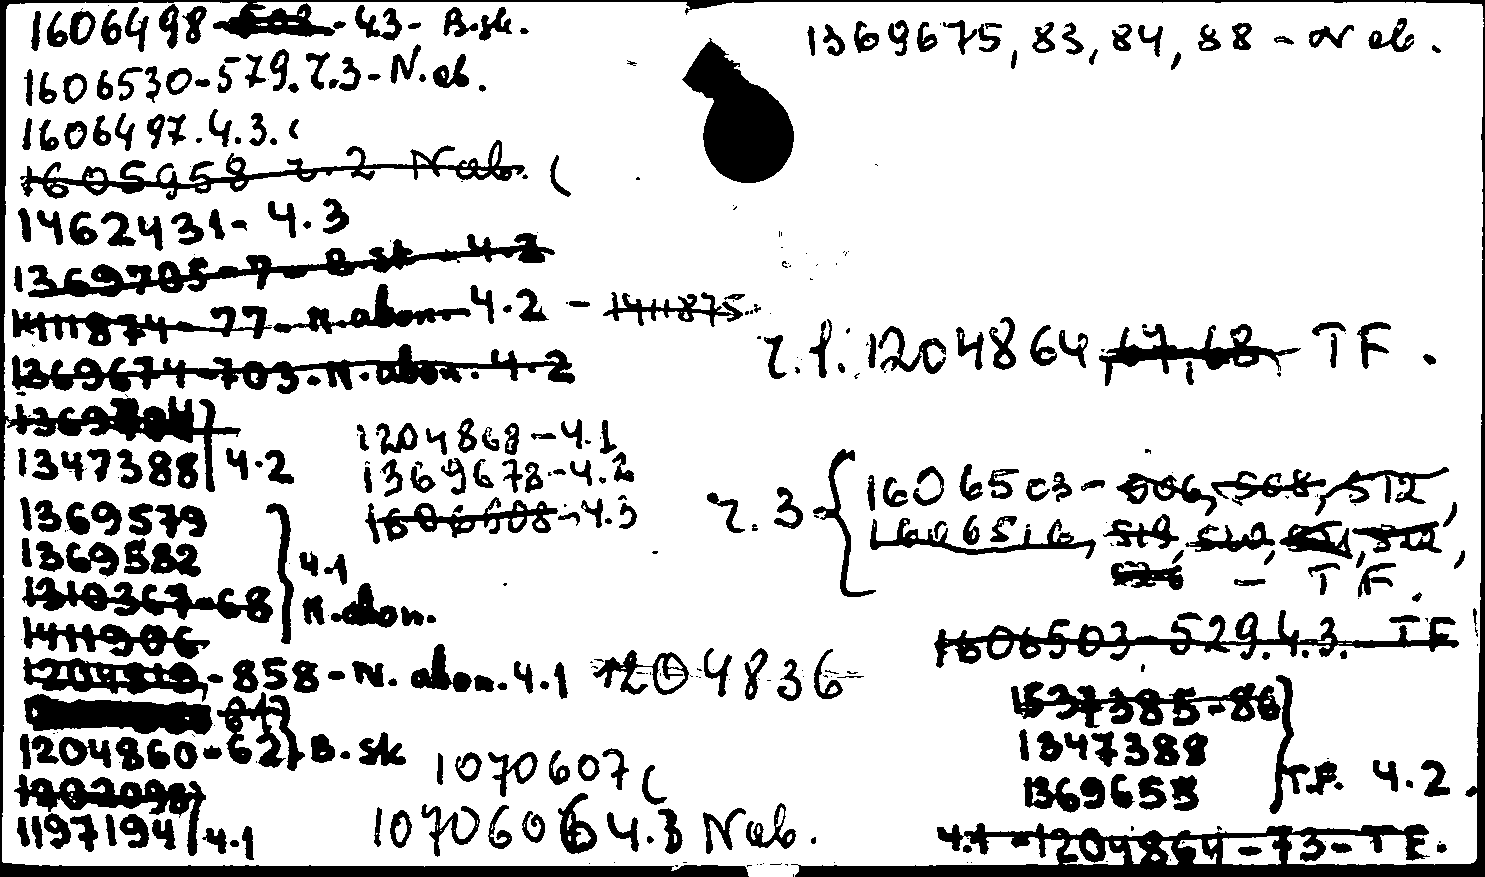 1606498-508-4.3- B.sk.
1606530-579.č.3-N.ab.
1606497.4.3.(
1605958 č.2 Nab. (
1462431- 4.3
1369705-7-B.sk-4.2
1411874-77-N.abon-4.2 - 1411875
1369674-703.N.abon. 4.2
1347388 4.2
1369579
1369582
1310367-68 4.1 N.abon.
1411906
1204819,-858-N. abon. 4.1 1204836
1204860-62 B.sk
1202098
1197194 4.1
1204868-4.1
1369678-4.2
1606608-4.3
1070607 (
1070606 4.3 Nab.
1369675, 83, 84, 88 - N ab.
č.1. 1204864,67,68, - TF.
č.3- 1606503-506, 508, 512,
1606516, 519, 520, 521, 522,
526 - TF.
1606503-529.4.3.-TF
1537385-86
1347388
1369653 T.F. 4.2.
4.1-1204864-73-TF.